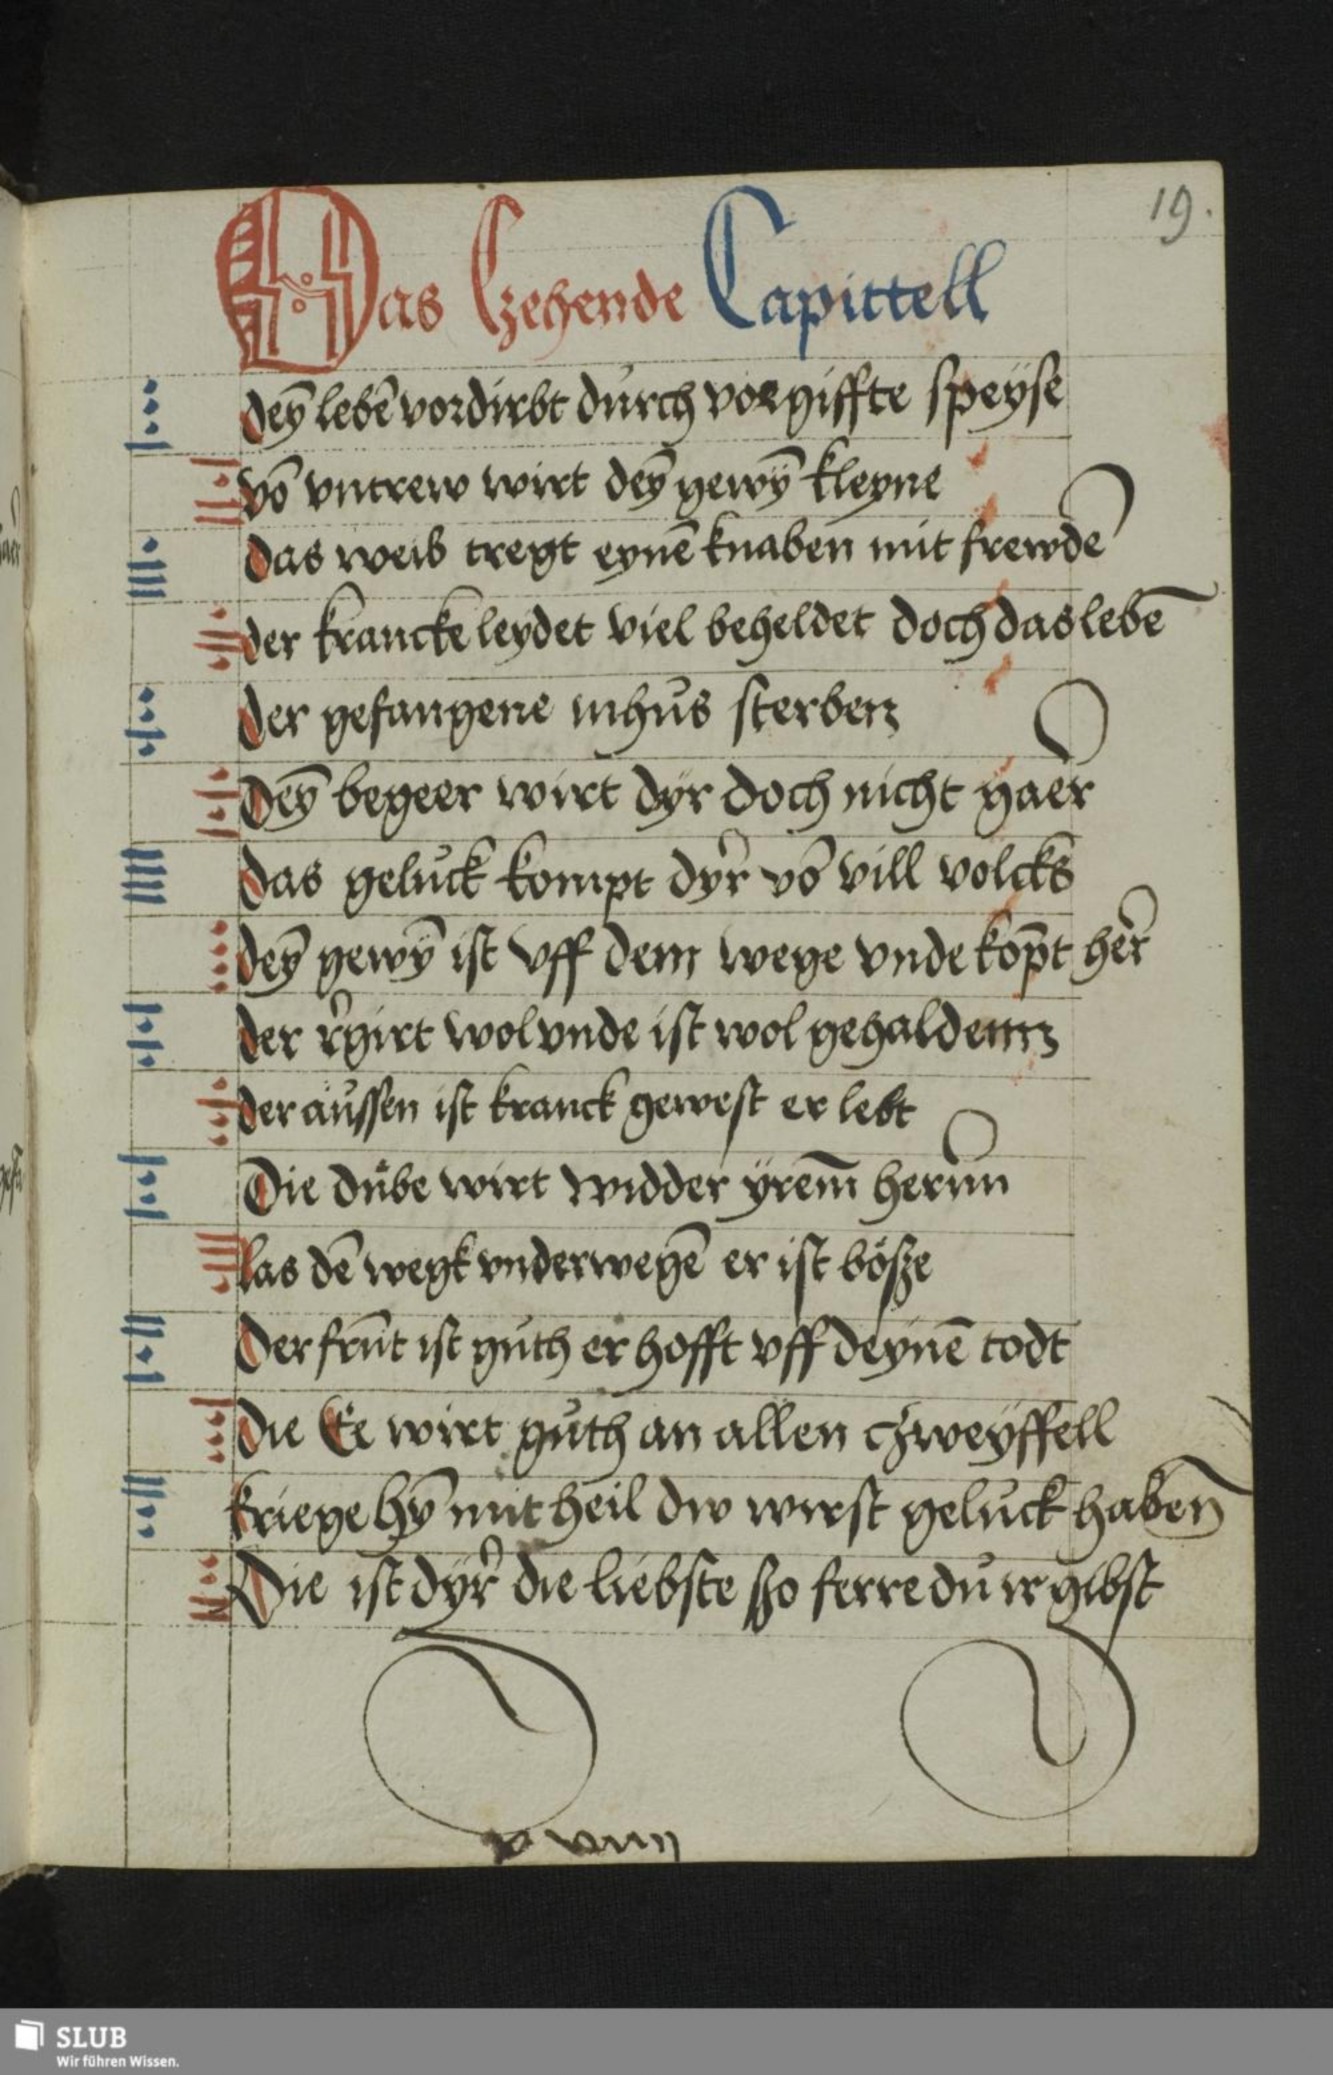 19.
Das Czehende Capittell
deȳ lebē vordirbt durch vorgiffte speÿse
vō vntrew wirt deȳ gewȳ kleyne
das weib tregt eynē knaben mit frewdē
der krancke leydet viel beheldet doch das lebē
der gefangene mhus sterben
Deȳ begeer wirt dÿr doch nicht gaer
das geluck kompt dyr vō vill volcks
deȳ gewȳ ist vff dem wege vnde kop̄t her
der rgirt wol vnde ist wol gehaldenn
der aussen ist kranck gewest er lebt
Die dube wirt widder ÿrem̄ hernn
las dē wegk vnderwegē er ist bösze
Der frūt ist guth er hofft vff deynē todt
die Ee wirt guth an allen czweyffell
kriege hȳ mit heil dw wirst geluck haben̄
Die ist dÿr die liebste szo ferre du ir gibst
SLUB
Wir führen Wissen.